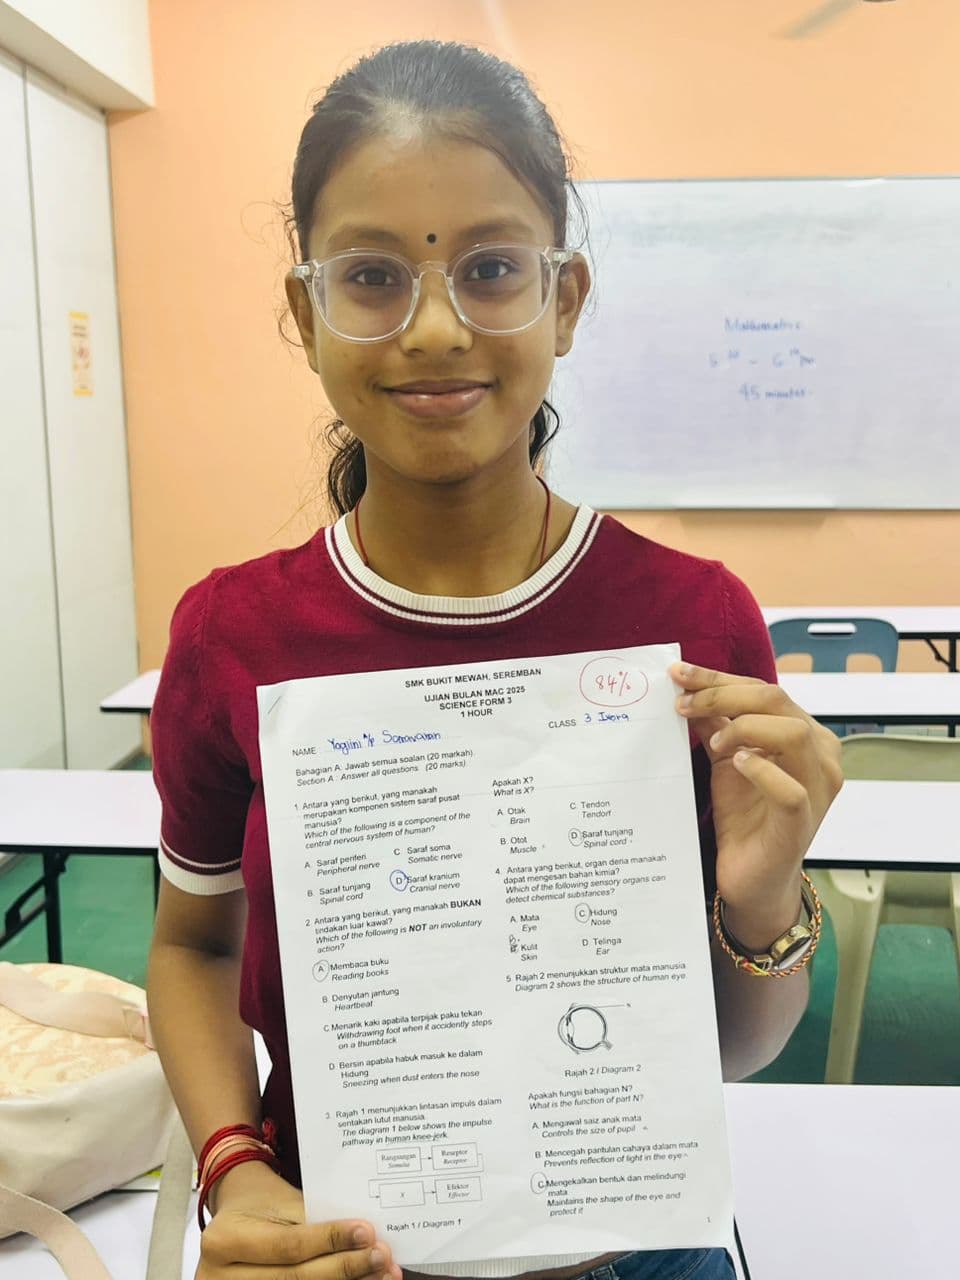 Mathematics
45 minutes
SMK BUKIT MEWAH, SEREMBAN
UJIAN BULAN MAC 2025
SCIENCE FORM 3
1 HOUR
84%
NAME Yogiini A/P
CLASS 3 Ixora
Bahagian A: Jawab semua soalan (20 markah)
Section A : Answer all questions. (20 marks)
1. Antara yang berikut, yang manakah
merupakan komponen sistem saraf pusat
manusia?
Which of the following is a component of the
central nervous system of human?
A. Saraf periferi
Peripheral nerve
C. Saraf soma
Somatic nerve
B. Saraf tunjang
Spinal cord
D. Saraf kranium
Cranial nerve
2. Antara yang berikut, yang manakah BUKAN
tindakan luar kawal?
Which of the following is NOT an involuntary
action?
A. Membaca buku
Reading books
B. Denyutan jantung
Heartbeat
C. Menarik kaki apabila terpijak paku tekan
Withdrawing foot when it accidently steps
on a thumbtack
D. Bersin apabila habuk masuk ke dalam
Hidung
Sneezing when dust enters the nose
3. Rajah 1 menunjukkan lintasan impuls dalam
sentakan lutut manusia.
The diagram 1 below shows the impulse
pathway in human knee-jerk.
Rangsangan
Stimulus
Reseptor
Receptor
X
Efektor
Effector
Rajah 1 / Diagram 1
Apakah X?
What is X?
A. Otak
Brain
C. Tendon
Tendon
B. Otot
Muscle
D. Saraf tunjang
Spinal cord
4. Antara yang berikut, organ deria manakah
dapat mengesan bahan kimia?
Which of the following sensory organs can
detect chemical substances?
A. Mata
Eye
C. Hidung
Nose
B.
Kulit
Skin
D. Telinga
Ear
5. Rajah 2 menunjukkan struktur mata manusia
Diagram 2 shows the structure of human eye.
Rajah 2 / Diagram 2
Apakah fungsi bahagian N?
What is the function of part N?
A. Mengawal saiz anak mata
Controls the size of pupil
B. Mencegah pantulan cahaya dalam mata
Prevents reflection of light in the eye
C. Mengekalkan bentuk dan melindungi
mata
Maintains the shape of the eye and
protect it
1